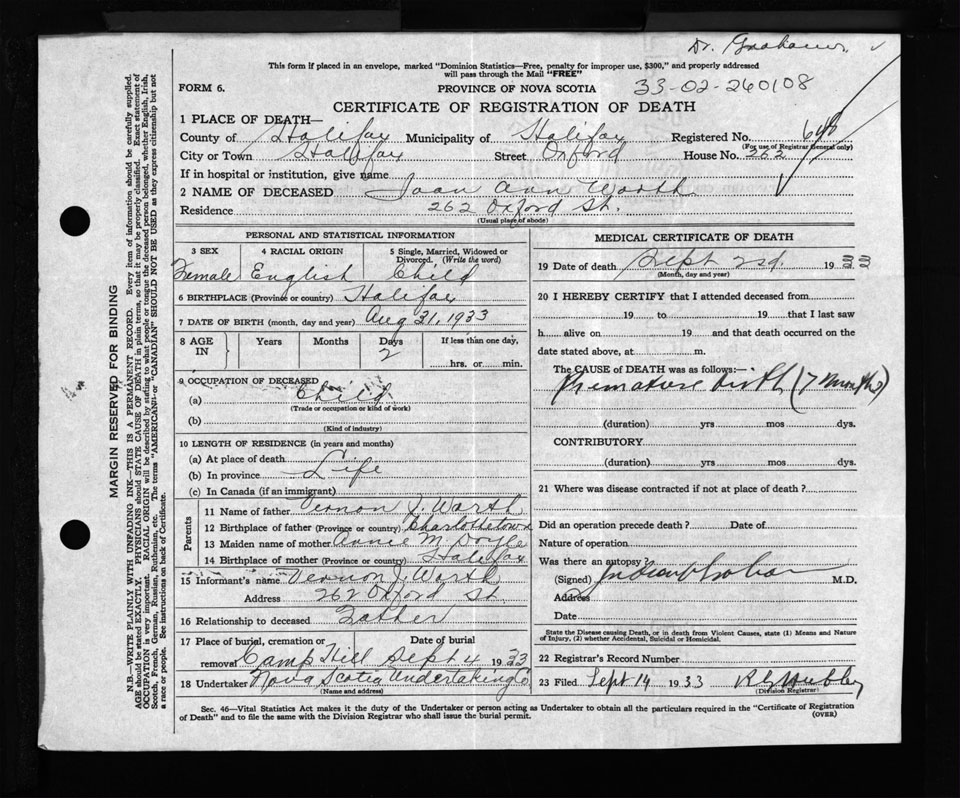 Dr. Graham
This form if placed in an envelope, marked "Dominion Statistics—Free, penalty for improper use, $300," and properly addressed
will pass through the Mail "FREE"
FORM 6.
PROVINCE OF NOVA SCOTIA
33-02-260108
CERTIFICATE OF REGISTRATION OF DEATH
1 PLACE OF DEATH—
County of Halifax Municipality of Halifax Registered No.
(For use of Registrar General only)
City or Town Halifax Street Oxford House No. 262
If in hospital or institution, give name
2 NAME OF DECEASED Joan Ann Warth
Residence 262 Oxford St.
(Usual place of abode)
PERSONAL AND STATISTICAL INFORMATION
3 SEX 4 RACIAL ORIGIN 5 Single, Married, Widowed or
Divorced. (Write the word)
Female English Child
6 BIRTHPLACE (Province or country) Halifax
7 DATE OF BIRTH (month, day and year) Aug 31, 1933
8 AGE IN Years Months Days If less than one day,
2
hrs. or min.
9 OCCUPATION OF DECEASED
(a) Child
(Trade or occupation or kind of work)
(b)
(Kind of industry)
10 LENGTH OF RESIDENCE (in years and months)
(a) At place of death
(b) In province Life
(c) In Canada (if an immigrant)
Parents
11 Name of father Vernon J. Warth
12 Birthplace of father (Province or country) Charlottetown
13 Maiden name of mother Annie M Doyle
14 Birthplace of mother (Province or country) Halifax
15 Informant's name Vernon J. Warth
Address 262 Oxford St.
16 Relationship to deceased Father
17 Place of burial, cremation or Date of burial
removal Camp Hill Sept 4 1933
18 Undertaker Nova Scotia Undertaking Co
(Name and address)
MEDICAL CERTIFICATE OF DEATH
19 Date of death Sept 2nd 19
(Month, day and year)
20 I HEREBY CERTIFY that I attended deceased from
19 to 19 that I last saw
h alive on 19 and that death occurred on the
date stated above, at m.
The CAUSE of DEATH was as follows:—
Premature birth (7 months)
(duration) yrs mos dys.
CONTRIBUTORY
(duration) yrs mos dys.
21 Where was disease contracted if not at place of death?
Did an operation precede death? Date of
Nature of operation
Was there an autopsy?
(Signed) M.D.
Address
Date
State the Disease causing Death, or in death from Violent Causes, state (1) Means and Nature
of Injury, (2) whether Accidental, Suicidal or Homicidal.
22 Registrar's Record Number
23 Filed Sept 14 1933
(Division Registrar)
Sec. 46—Vital Statistics Act makes it the duty of the Undertaker or person acting as Undertaker to obtain all the particulars required in the "Certificate of Registration
of Death" and to file the same with the Division Registrar who shall issue the burial permit.
(OVER)
MARGIN RESERVED FOR BINDING
N.B.—WRITE PLAINLY WITH UNFADING INK—THIS IS A PERMANENT RECORD. Every item of information should be carefully supplied.
AGE should be stated EXACTLY. PHYSICIANS should STATE CAUSE OF DEATH in plain terms, so that it may be properly classified. Exact statement of
OCCUPATION is very important. RACIAL ORIGIN will be described by stating to what people or tongue the deceased person belonged, whether English, Irish,
Scotch, French, German, Russian, Ruthenian, etc. The terms "AMERICAN" or "CANADIAN" SHOULD NOT BE USED as they express citizenship but not
a race or people. See instructions on back of Certificate.